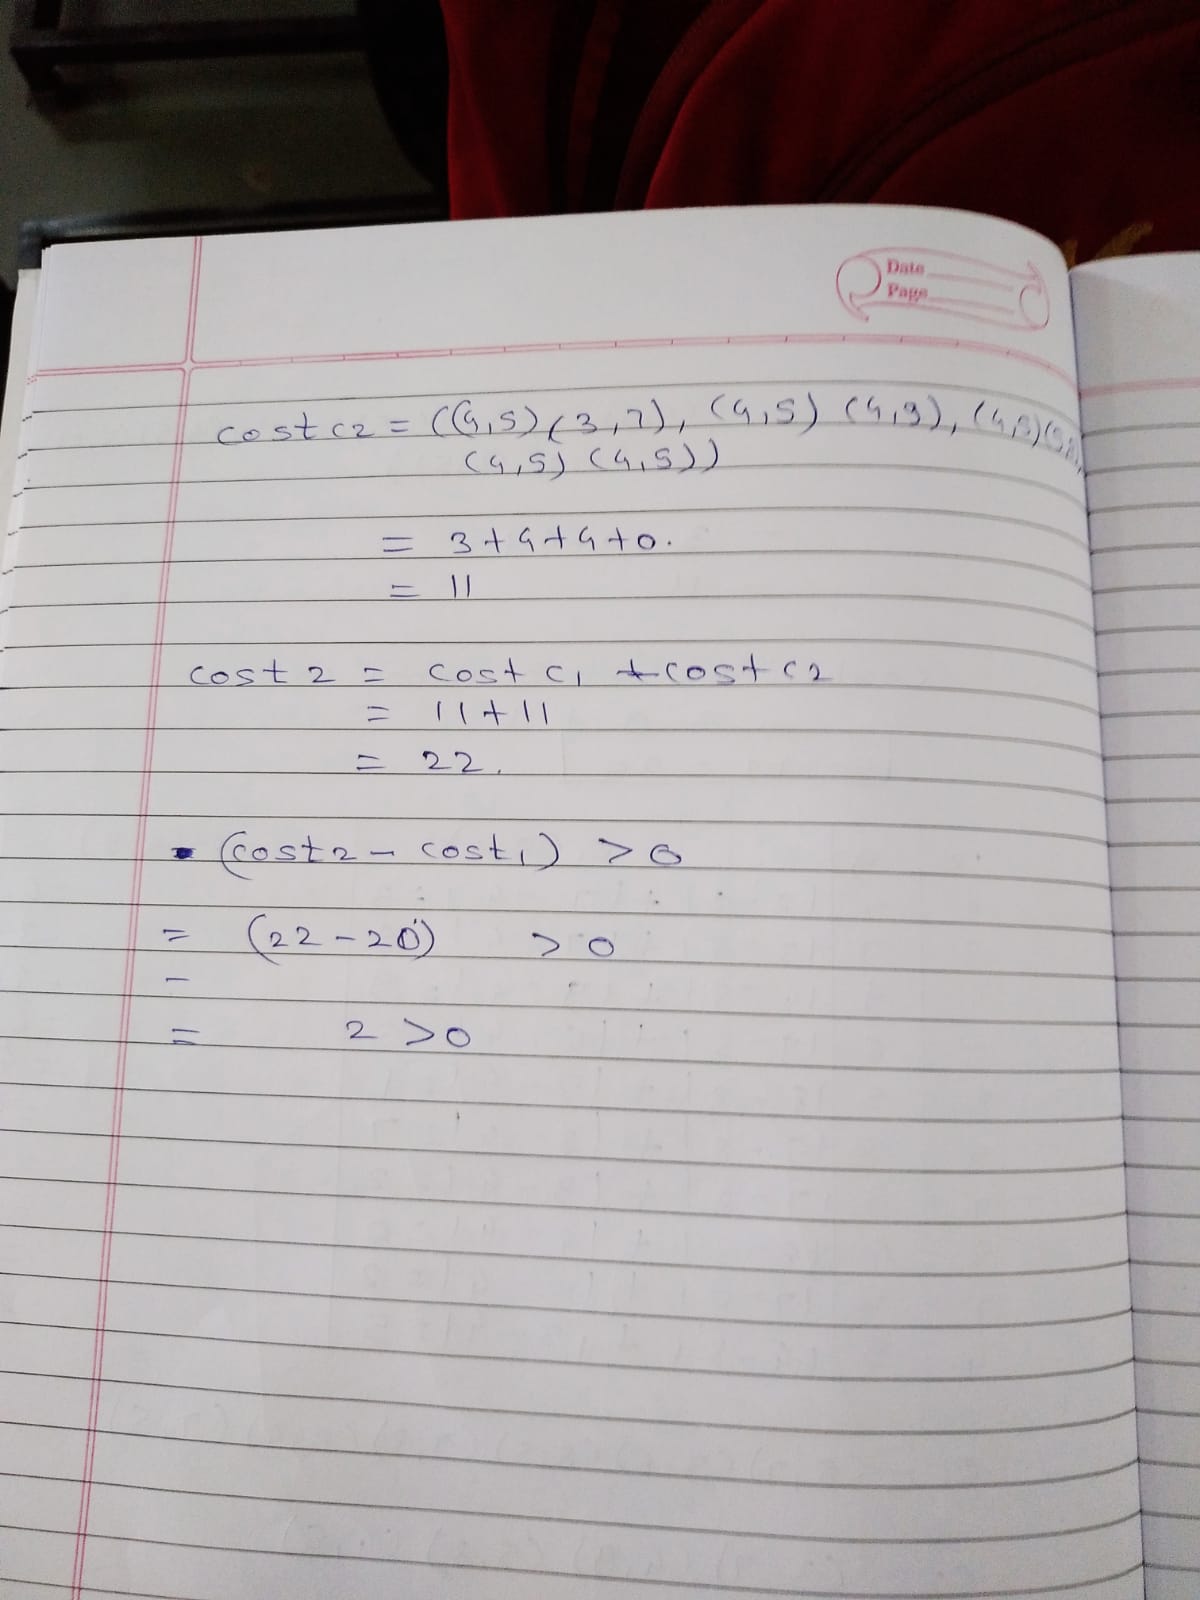 Date
Page
cost c2 = ((4,5) (3,7), (4,5) (4,9), (4,5)
(4,5) (4,5))
= 3+4+4+0.
= 11
cost 2 = cost c1 + cost c2
= 11+11
= 22.
(cost2 - cost1) > 0
= (22-20) > 0
-
= 2 > 0